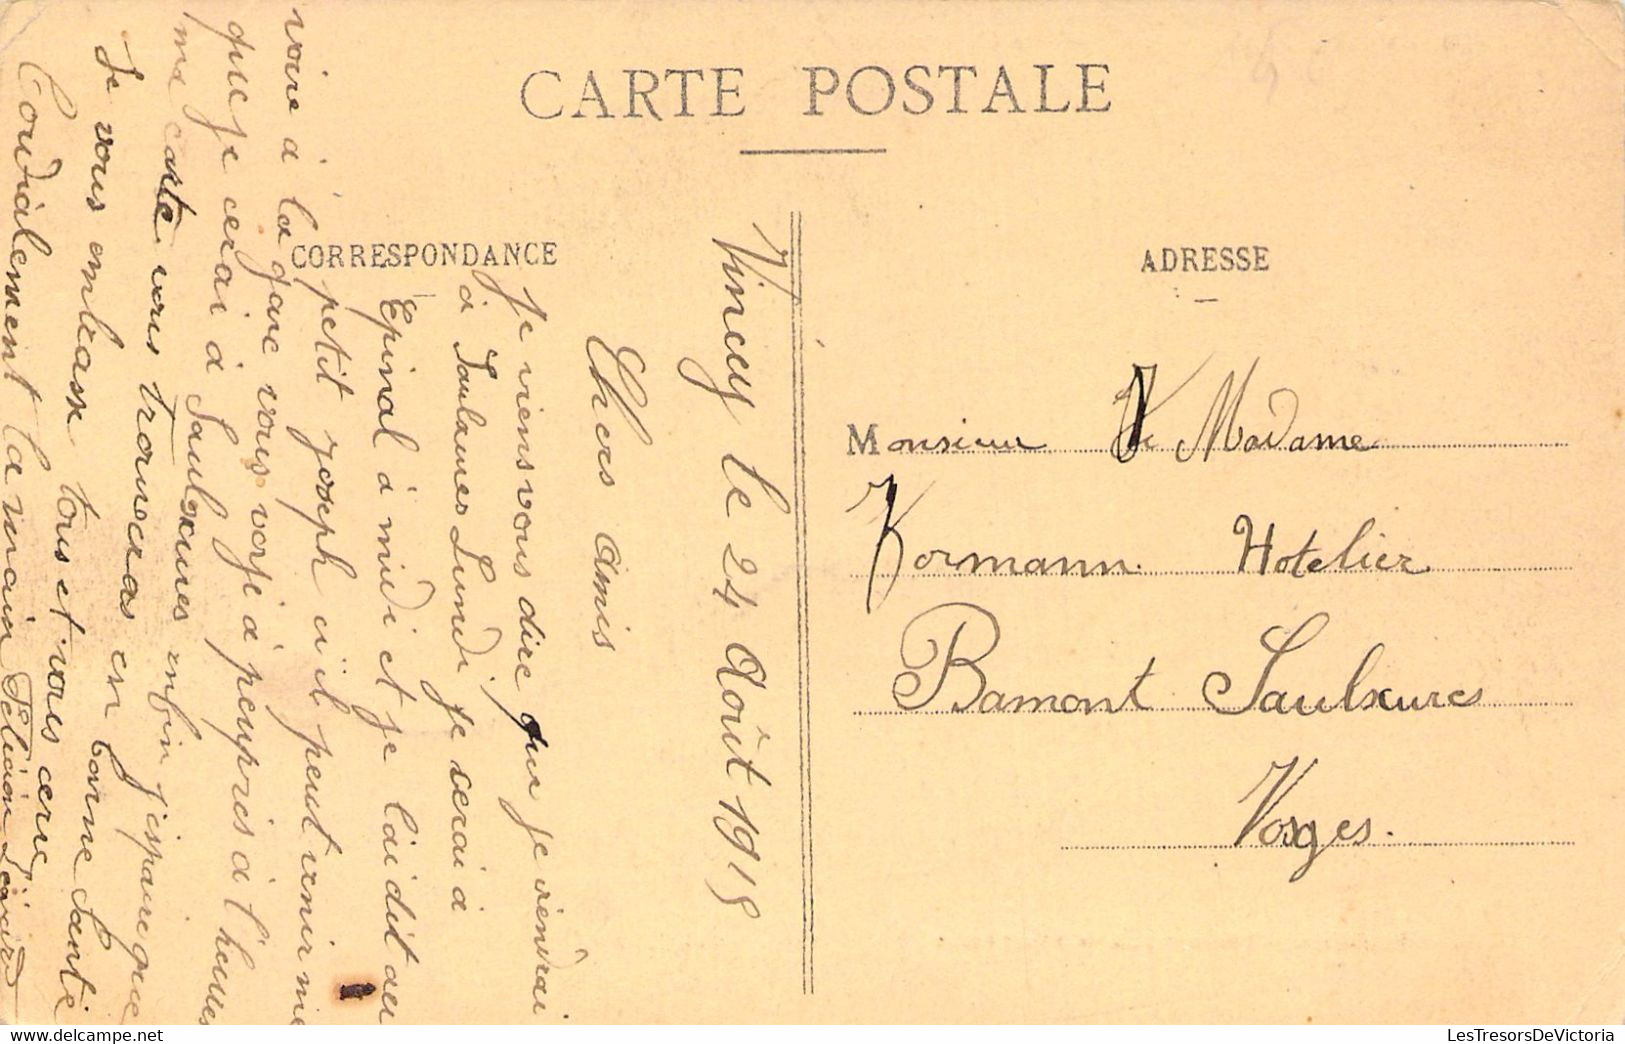 CARTE POSTALE
CORRESPONDANCE
ADRESSE
Vincey le 24 Août 1915
Chers amis
Je viens vous dire que je viendrai
à Saulxures Lundi, je serai à
Epinal à midi et je l'ai dit au
petit joseph s'il peut venir me
voire à la gare vous voyé à peuprès à l'heure
que je cerai à Saulxures enfin j'espaire que
ma carte vous trouveras en bonne Santé
Je vous embrasse tous et vous cerre
Cordialement la main Félicien
Monsieur & Madame
Kormann Hotelier
Bamont Saulxures
Vosges.
LesTresorsDeVictoria